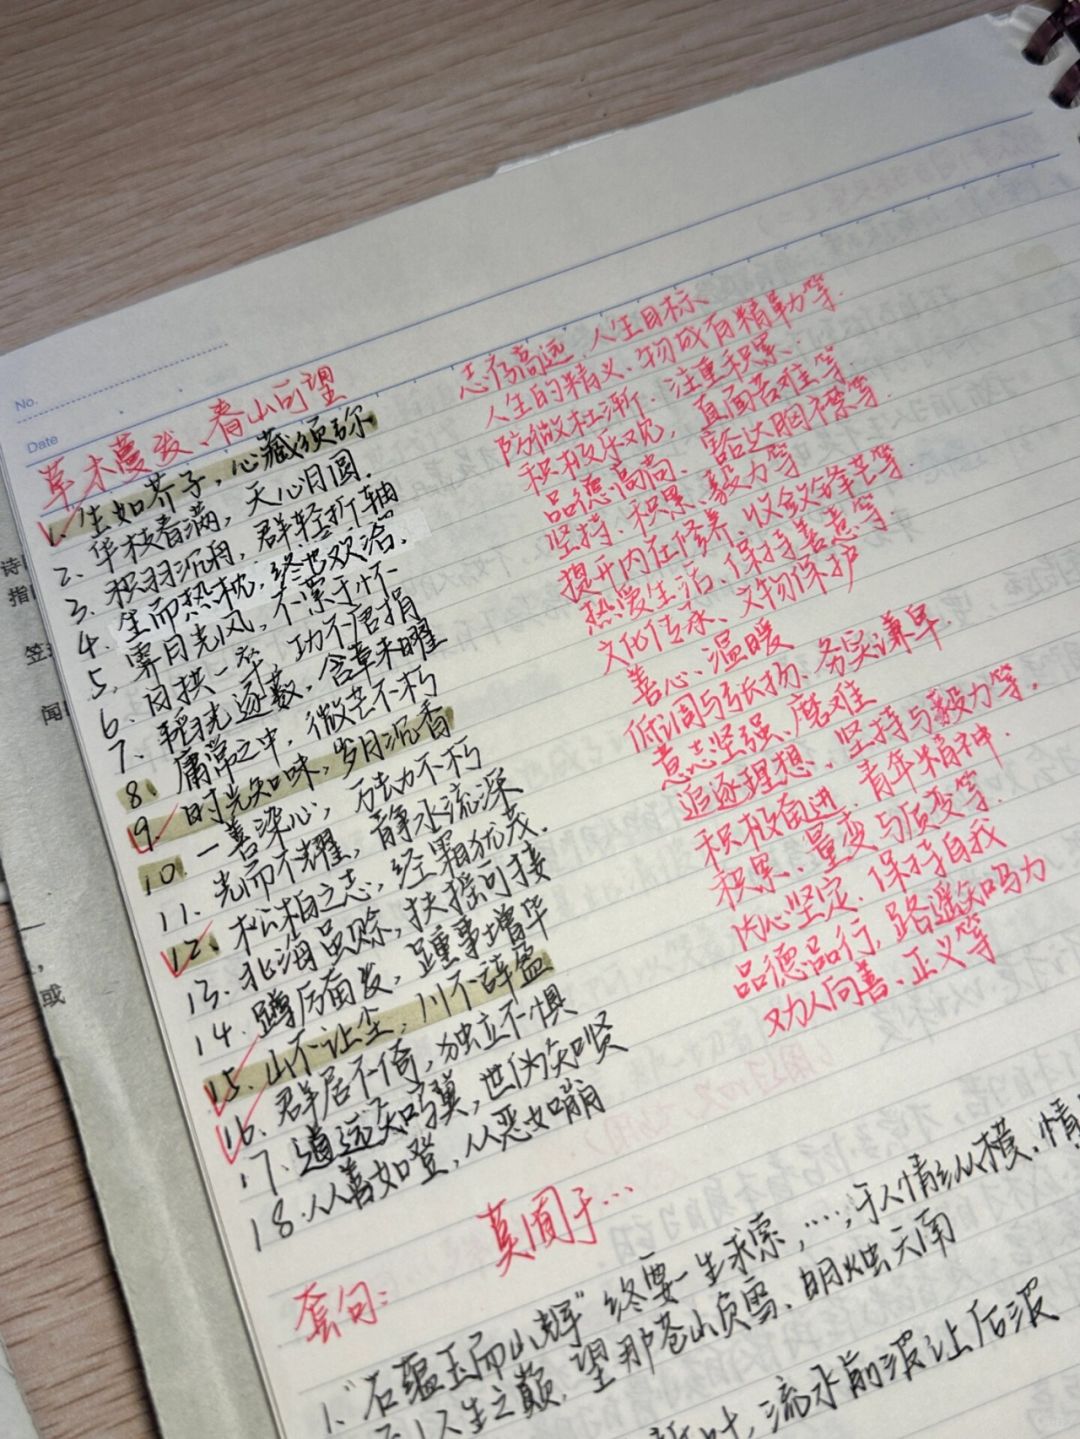 No.
Date
草木蔓发、春山可望
1. 生如芥子，心藏须弥 志存高远、人生目标
2. 华枝春满，天心月圆. 人生的精义、物成有精勤等.
3. 积羽沉舟，群轻折轴 防微杜渐、注重积累.
4. 生而热忱，终也欢洽. 积极乐观，直面苦难等
5. 霁月光风，不萦于怀 品德高尚、豁达胸襟等.
6. 日拱一卒，功不唐捐 坚持、积累、毅力等
7. 韬光逐薮，含章未曜 提升内在修养、收敛锋芒等.
8. 庸常之中，微芒不朽 热爱生活、保持善意等.
9. 时光知味，岁月沉香 文化传承、文物保护
10. 一善染心，万劫不朽 善心、温暖
11. 光而不耀，静水流深 低调与张扬、务实谦卑
12. 松柏之志，经霜犹茂. 意志坚强、磨难
13. 北海虽赊，扶摇可接 追逐理想、坚持与毅力等.
14. 踔厉奋发，踵事增华 积极奋进、青年精神.
15. 山不让尘，川不辞盈 积累、量变与质变等.
16. 群居不倚，独立不惧 内心坚定、保持自我
17. 道远知骥，世伪知贤 品德品行，路遥知马力
18. 从善如登，从恶如崩 劝人向善、正义等
莫囿于…
套句：
1、“石蕴玉而山辉”终要一生求索，……，于人情纵横、情
人生之巅，望那苍山负雪、明烛天南
流水前波让后波
诗
指
签
闻
一
或